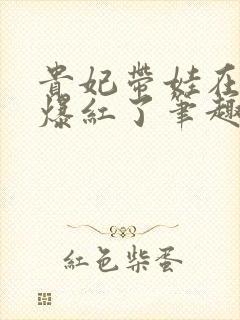 貴妃帶娃在
爆紅了筆趣
紅色柴蛋